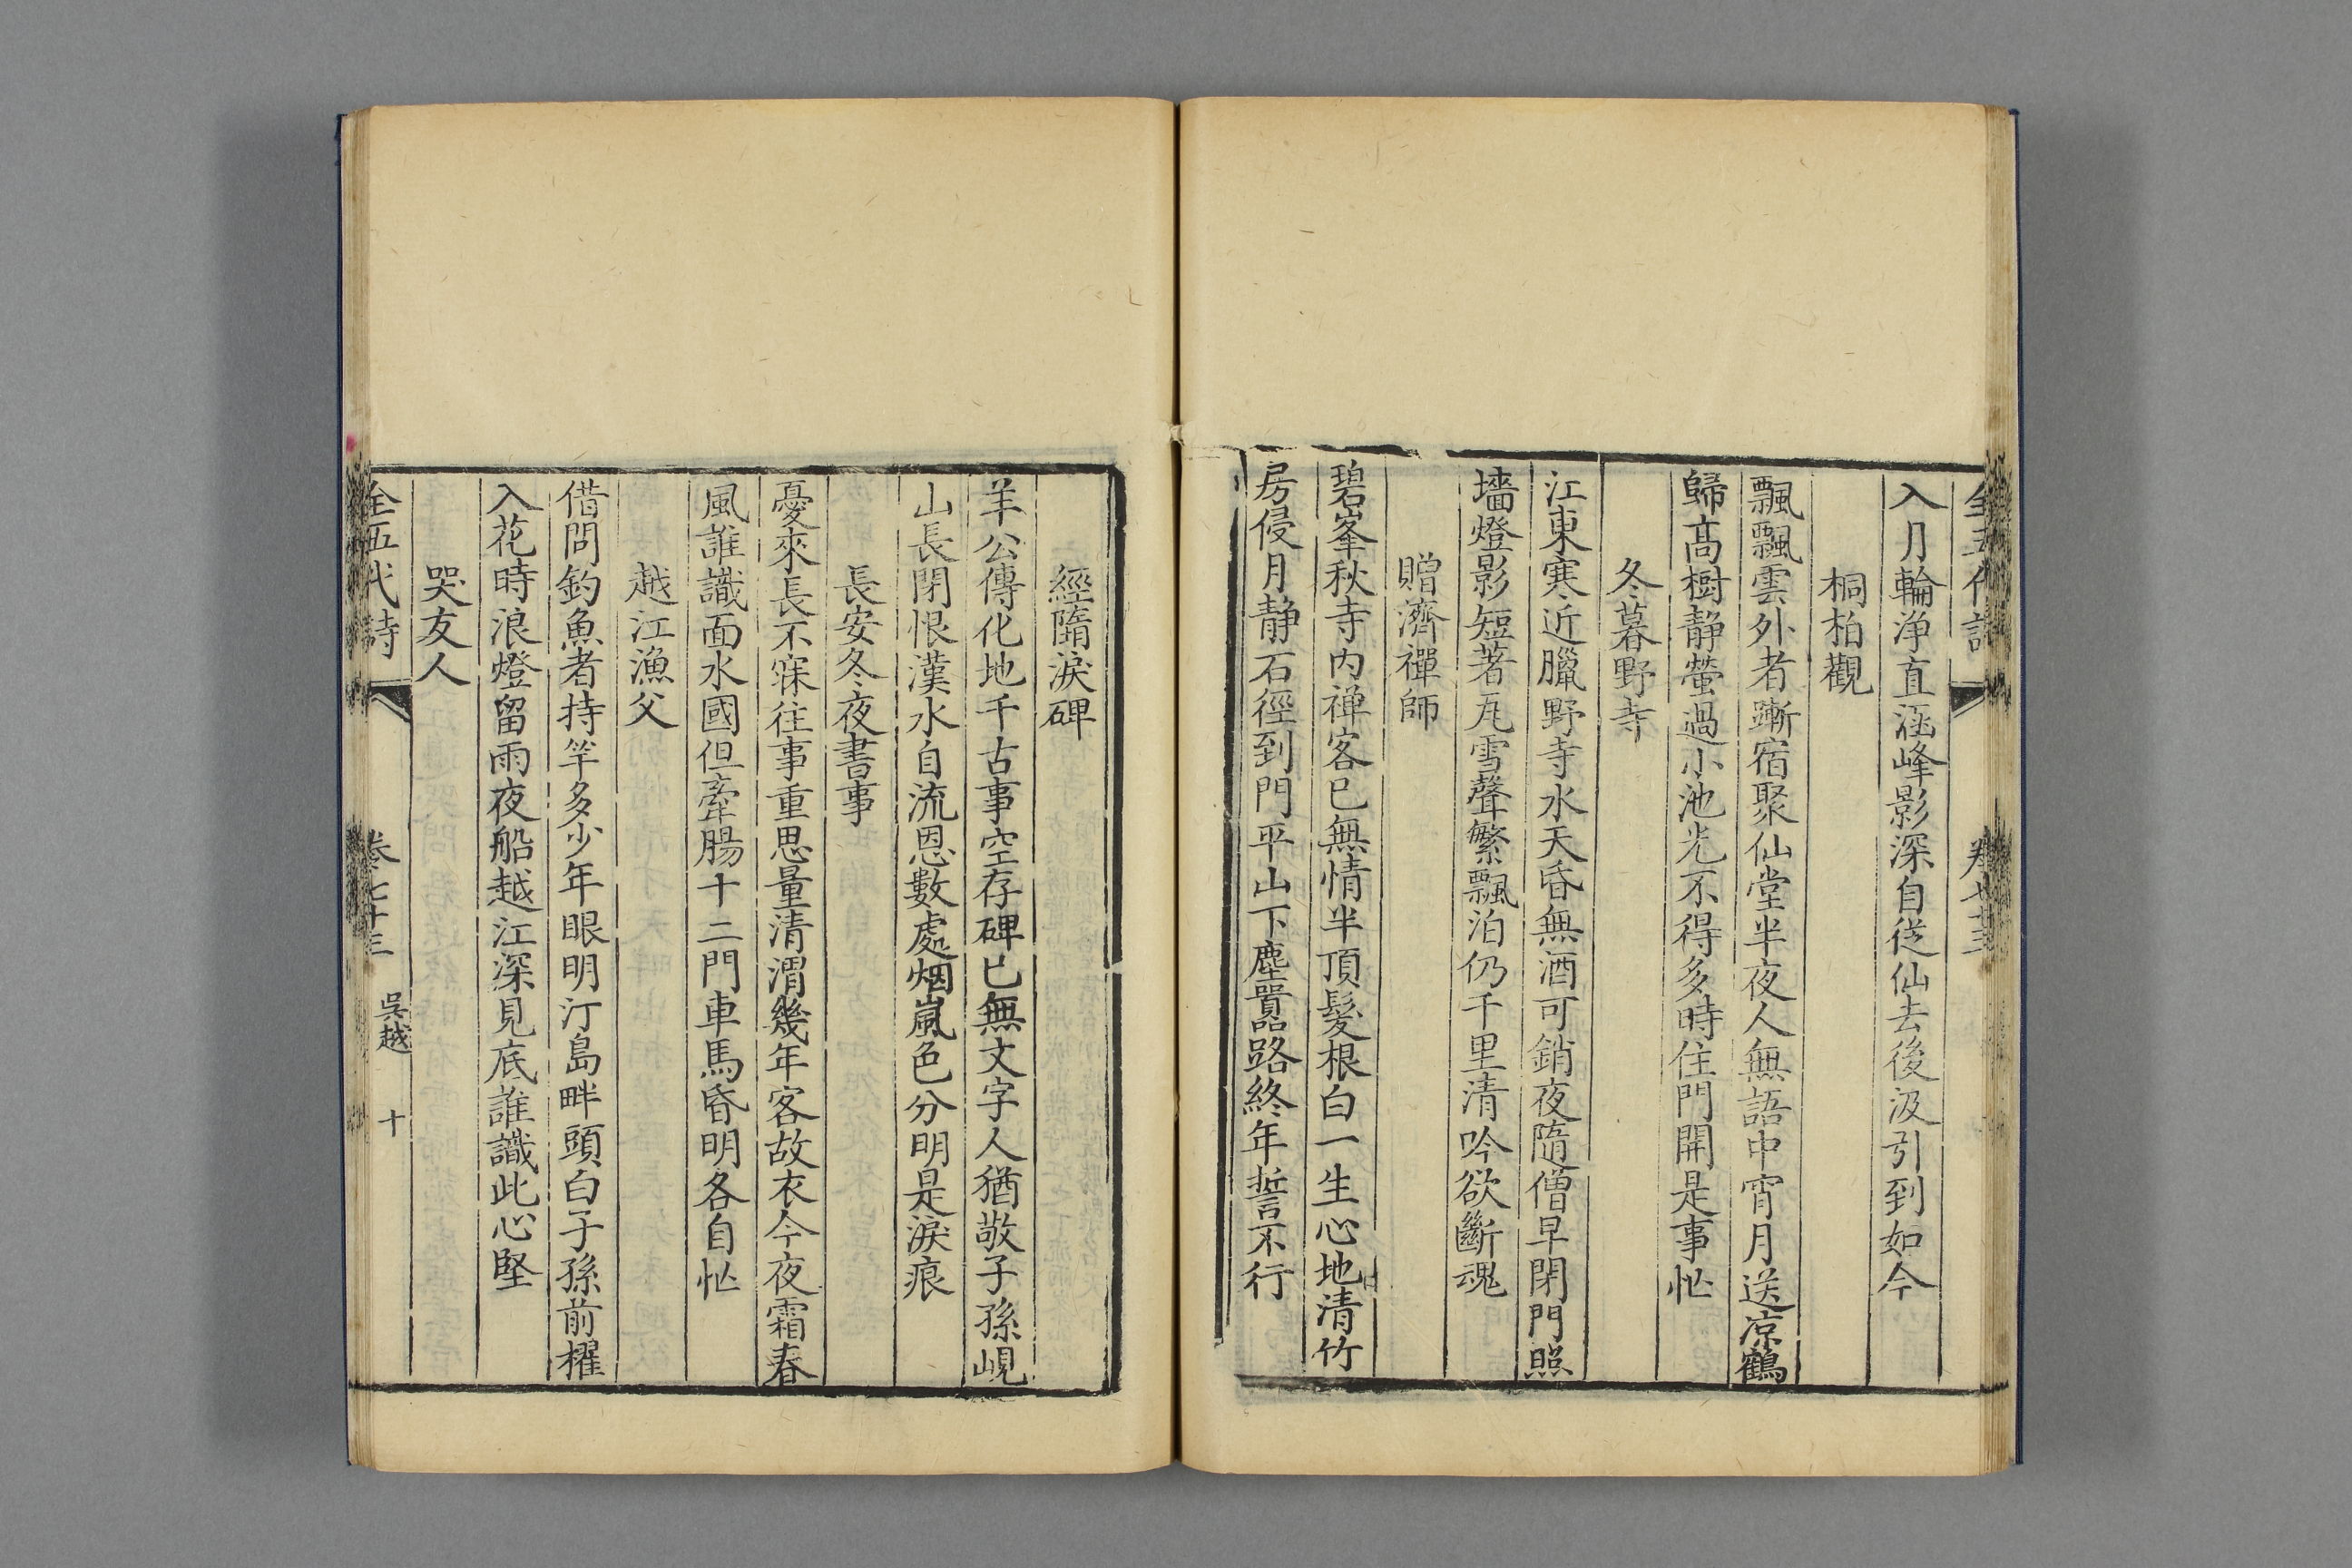 全五代詩
卷七十三
入月輪浄直涵峰影深自从仙去後汲引到如今
桐柏觀
飄飄雲外者蹔宿聚仙堂半夜人無語中宵月送凉鶴
歸高樹静螢過小池光不得多時住門開是事忙
冬暮野寺
江東寒近臘野寺水天昏無酒可銷夜隨僧早閉門照
墻燈影短著瓦雪聲繁飄泊仍千里清吟欲斷魂
贈濟禪師
碧峯秋寺内禅客已無情半頂髮根白一生心地清竹
房侵月静石徑到門平山下塵嚣路終年誓不行
經隋淚碑
羊公傳化地千古事空存碑已無文字人猶敬子孫峴
山長閉恨漢水自流恩數處烟嵐色分明是淚痕
長安冬夜書事
憂來長不寐往事重思量清渭幾年客故衣今夜霜春
風誰識面水國但牽腸十二門車馬昏明各自忙
越江漁父
借問釣魚者持竿多少年眼明汀島畔頭白子孫前櫂
入花時浪燈留雨夜船越江深見底誰識此心堅
哭友人
全五代詩
卷七十三
吳越
十